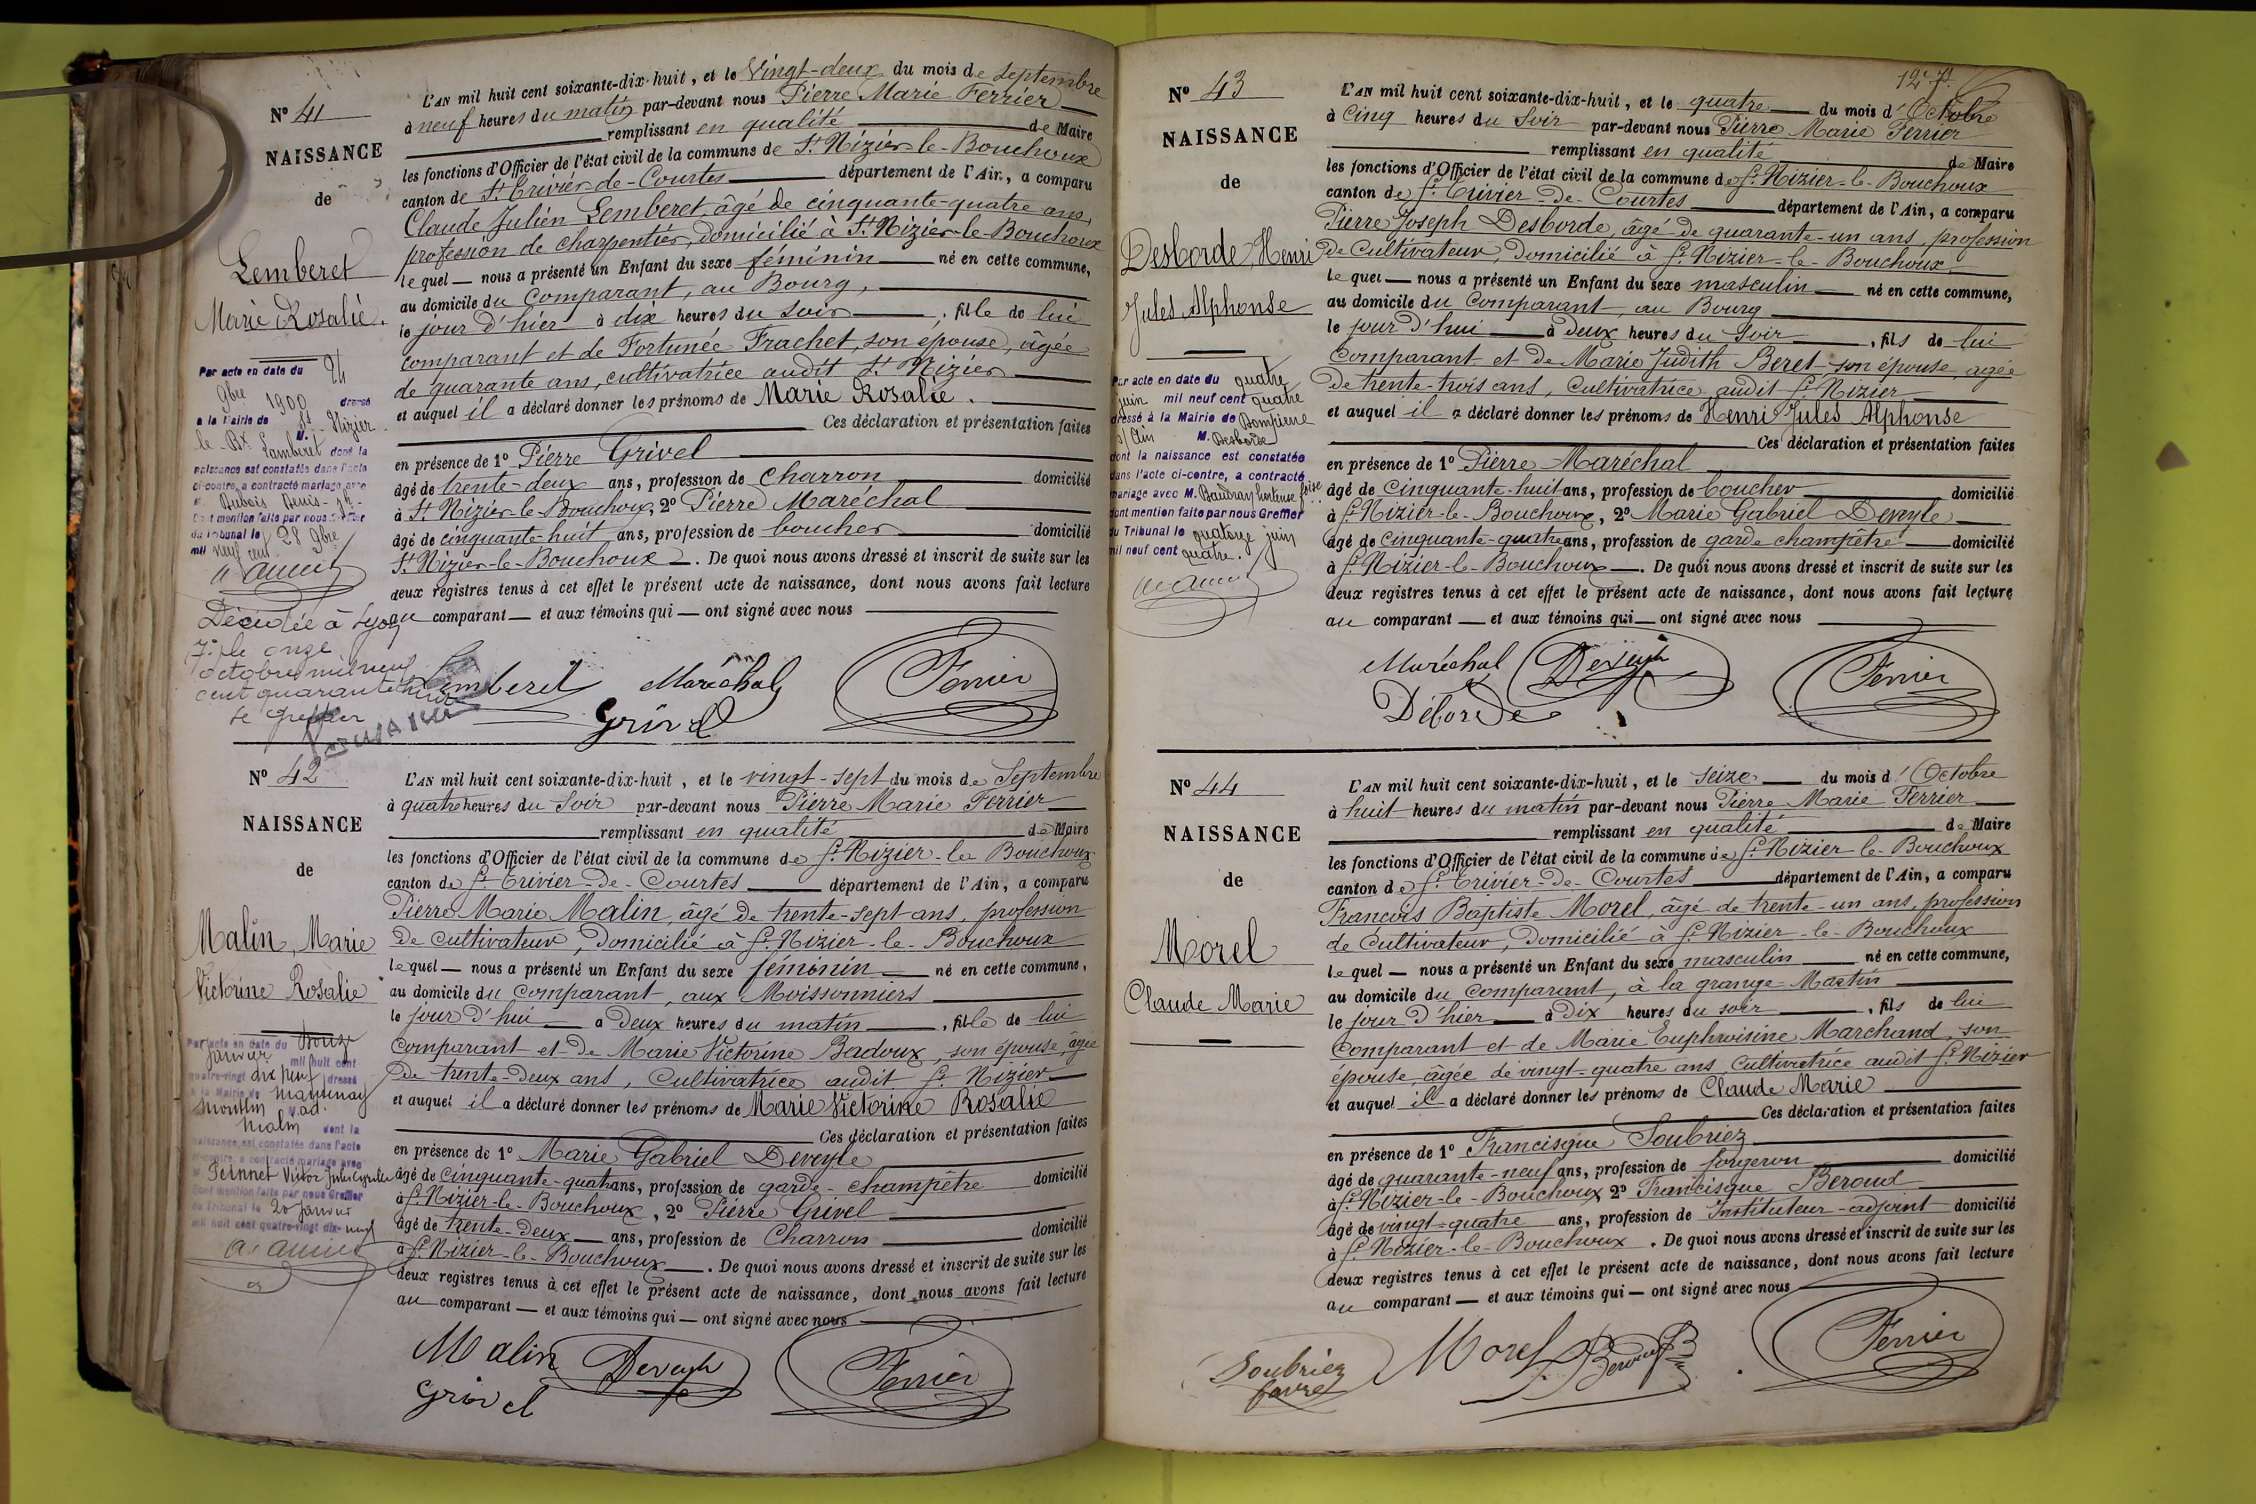 Nº 41
NAISSANCE
de
Lemberet
Marie Rosalie.
Par acte en date du 24
9bre 1900 dressé
a la Mairie de St Nizier
le Bx M. Lamberet dont la
naissance est constatée dans l'acte
ci-contre, a contracté mariage avec
M. Dubois Denis Jh
Dont mention faite par nous Greffier
du Tribunal le 28 9bre
mil neuf cent
Décédée à Lyon
7e le onze
octobre mil neuf
cent quarante
le greffier
L'AN mil huit cent soixante-dix-huit, et le Vingt-deux du mois de septembre
à neuf heures du matin par-devant nous Pierre Marie Ferrier
remplissant en qualité de Maire
les fonctions d'Officier de l'état civil de la commune de St Nizier-le-Bouchoux
canton de St Trivier-de-Courtes département de l'Ain, a comparu
Claude Julien Lemberet, âgé de cinquante-quatre ans,
profession de charpentier, domicilié à St Nizier-le-Bouchoux
lequel nous a présenté un Enfant du sexe féminin né en cette commune,
au domicile du comparant, au Bourg,
le jour d'hier à dix heures du soir, fille de lui
comparant et de Fortunée Frachet, son épouse, âgée
de quarante ans, cultivatrice audit St Nizier
et auquel il a déclaré donner les prénoms de Marie Rosalie.
Ces déclaration et présentation faites
en présence de 1º Pierre Grivel
âgé de trente-deux ans, profession de charron domicilié
à St Nizier-le-Bouchoux, 2º Pierre Maréchal
âgé de cinquante-huit ans, profession de boucher domicilié
St Nizier-le-Bouchoux. De quoi nous avons dressé et inscrit de suite sur les
deux registres tenus à cet effet le présent acte de naissance, dont nous avons fait lecture
au comparant et aux témoins qui ont signé avec nous
Lemberet Maréchal Ferrier
Grivel
Nº 42
NAISSANCE
de
Malin, Marie
Victorine Rosalie
Par acte en date du Douze
Janvier mil huit cent
quatre-vingt dix neuf dressé
à la Mairie de Mantenay
Montlin M. ad.
Malin dont la
naissance est constatée dans l'acte
ci-contre, a contracté mariage avec
M. Peinnet Victor Jules Cyrille
Dont mention faite par nous Greffier
du Tribunal le 20 Janvier
mil huit cent quatre-vingt dix-neuf
L'AN mil huit cent soixante-dix-huit, et le vingt-sept du mois de Septembre
à quatre heures du Soir par-devant nous Pierre Marie Ferrier
remplissant en qualité de Maire
les fonctions d'Officier de l'état civil de la commune de St Nizier-le Bouchoux
canton de St Trivier-de-Courtes département de l'Ain, a comparu
Pierre Marie Malin, âgé de trente-sept ans, profession
de cultivateur, Domicilié à St Nizier-le-Bouchoux
lequel nous a présenté un Enfant du sexe féminin né en cette commune,
au domicile du comparant, aux Moissonniers
le jour d'hui à Deux heures du matin, fille de lui
comparant et de Marie Victorine Badoux, son épouse, âgée
de trente-deux ans, Cultivatrice audit St Nizier
et auquel il a déclaré donner les prénoms de Marie Victorine Rosalie
Ces déclaration et présentation faites
en présence de 1º Marie Gabriel Deveyle
âgé de cinquante-quatre ans, profession de garde-champêtre domicilié
à St Nizier-le-Bouchoux, 2º Pierre Grivel
âgé de trente-deux ans, profession de Charron domicilié
à St Nizier-le-Bouchoux. De quoi nous avons dressé et inscrit de suite sur les
deux registres tenus à cet effet le présent acte de naissance, dont nous avons fait lecture
au comparant et aux témoins qui ont signé avec nous
Malin Deveyle Ferrier
Grivel
127
Nº 43
NAISSANCE
de
Desborde, Henri
Jules Alphonse
Par acte en date du quatre
juin mil neuf cent quatre
dressé à la Mairie de Dompierre
s/ Ain M. Desborde
dont la naissance est constatée
dans l'acte ci-contre, a contracté
mariage avec M. Baudray hortense
dont mention faite par nous Greffier
du Tribunal le quatorze juin
mil neuf cent quatre.
L'AN mil huit cent soixante-dix-huit, et le quatre du mois d'Octobre
à Cinq heures du Soir par-devant nous Pierre Marie Ferrier
remplissant en qualité de Maire
les fonctions d'Officier de l'état civil de la commune de St Nizier-le-Bouchoux
canton de St Trivier-de-Courtes département de l'Ain, a comparu
Pierre Joseph Desborde, âgé de quarante-un ans, profession
de Cultivateur, Domicilié à St Nizier-le-Bouchoux
lequel nous a présenté un Enfant du sexe masculin né en cette commune,
au domicile du comparant, au Bourg
le jour d'hui à deux heures du Soir, fils de lui
comparant et de Marie Judith Beret son épouse, âgée
de trente-trois ans, Cultivatrice audit St Nizier
et auquel il a déclaré donner les prénoms de Henri Jules Alphonse
Ces déclaration et présentation faites
en présence de 1º Pierre Maréchal
âgé de Cinquante-huit ans, profession de boucher domicilié
à St Nizier-le-Bouchoux, 2º Marie Gabriel Deveyle
âgé de Cinquante-quatre ans, profession de garde champêtre domicilié
à St Nizier-le-Bouchoux. De quoi nous avons dressé et inscrit de suite sur les
deux registres tenus à cet effet le présent acte de naissance, dont nous avons fait lecture
au comparant et aux témoins qui ont signé avec nous
Maréchal Deveyle Ferrier
Déborde
Nº 44
NAISSANCE
de
Morel
Claude Marie
L'AN mil huit cent soixante-dix-huit, et le seize du mois d'Octobre
à huit heures du matin par-devant nous Pierre Marie Ferrier
remplissant en qualité de Maire
les fonctions d'Officier de l'état civil de la commune de St Nizier-le-Bouchoux
canton de St Trivier-de-Courtes département de l'Ain, a comparu
François Baptiste Morel, âgé de trente-un ans, profession
de Cultivateur, Domicilié à St Nizier-le-Bouchoux
lequel nous a présenté un Enfant du sexe masculin né en cette commune,
au domicile du comparant, à la grange-Martin
le jour d'hier à Dix heures du soir, fils de lui
comparant et de Marie Euphroisine Marchand, son
épouse, âgée de vingt-quatre ans, Cultivatrice audit St Nizier
et auquel il a déclaré donner les prénoms de Claude Marie
Ces déclaration et présentation faites
en présence de 1º Francisque Soubriez
âgé de quarante-neuf ans, profession de forgeron domicilié
à St Nizier-le-Bouchoux 2º Francisque Beroud
âgé de vingt-quatre ans, profession de Instituteur-adjoint domicilié
à St Nizier-le-Bouchoux. De quoi nous avons dressé et inscrit de suite sur les
deux registres tenus à cet effet le présent acte de naissance, dont nous avons fait lecture
au comparant et aux témoins qui ont signé avec nous
Soubriez Morel F. Beroud Ferrier
favre